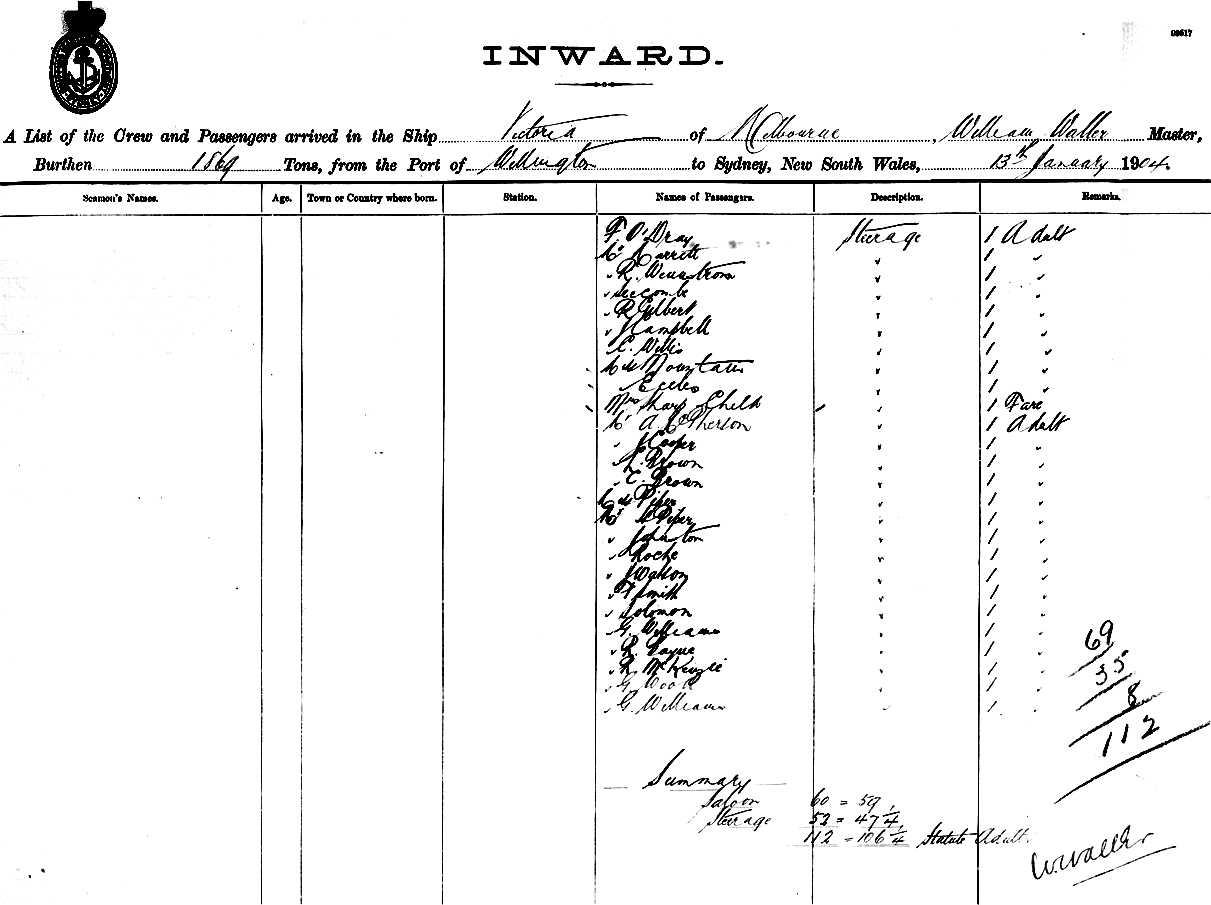 00517
INWARD.
A List of the Crew and Passengers arrived in the Ship Victoria of Melbourne, William Waller Master,
Burthen 1869 Tons, from the Port of Wellington to Sydney, New South Wales, 13th January 1904.
Seamen's Names. Age. Town or Country where born. Station. Names of Passengers. Description. Remarks.
F O'Dray Steerage 1 Adult
Mr Garrett " 1 "
" R. Wennstrom " 1 "
" Seccombe " 1 "
" R Gilbert " 1 "
" J Campbell " 1 "
" C. Willis " 1 "
Mrs Mountain " 1 "
" Eccles " 1 "
Mrs Sharp & Child " 1 Fare
Mr A McPherson " 1 Adult
" J Cooper " 1 "
" Brown " 1 "
" C. Brown " 1 "
Mrs Piper " 1 "
Mr Piper " 1 "
" Johnston " 1 "
" Roche " 1 "
" J Watson " 1 "
" F Smith " 1 "
" Solomon " 1 "
" G. Williams " 1 "
" R. " 1 "
" R. McKenzie " 1 "
" G. Wood " 1 "
" G. Williams " 1 "
69
35
8
112
Summary
Saloon 60 = 59
Steerage 52 = 47 1/4
112 = 106 1/4 Statute Adult.
W. Waller